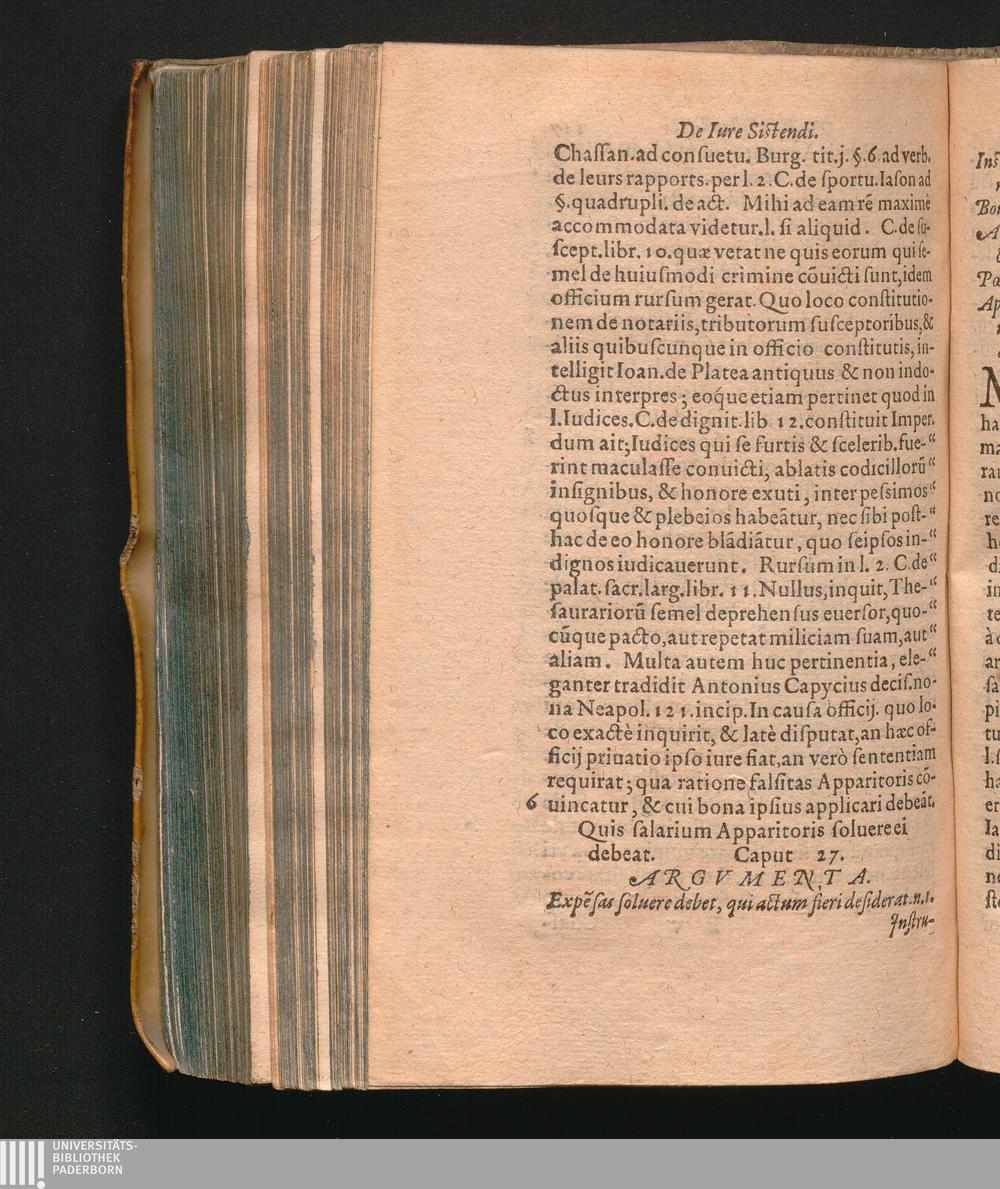 De Iure Sistendi.
Chaſſan. ad conſuetu. Burg. tit. j. §. 6 ad verb.
de leurs rapports. per l. 2. C. de ſportu. Iaſon ad
§. quadrupli. de act. Mihi ad eam rē maximè
accommodata videtur. l. ſi aliquid. C. de ſu-
ſcept. libr. 10. quæ vetat ne quis eorum qui ſe-
mel de huiuſmodi crimine cōuicti ſunt, idem
officium rurſum gerat. Quo loco conſtitutio-
nem de notariis, tributorum ſuſceptoribus, &
aliis quibuſcunque in officio conſtitutis, in-
telligit Ioan. de Platea antiquus & non indo-
ctus interpres; eoque etiam pertinet quod in
l. Iudices. C. de dignit. lib. 12. conſtituit Imper.
dum ait; Iudices qui ſe furtis & ſcelerib. fue-“
rint maculaſſe conuicti, ablatis codicillorū“
inſignibus, & honore exuti, inter peſsimos“
quoſque & plebeios habeãtur, nec ſibi poſt-“
hac de eo honore blãdiãtur, quo ſeipſos in-“
dignos iudicauerunt. Rurſum in l. 2. C. de“
palat. ſacr. larg. libr. 11. Nullus, inquit, The-“
ſaurariorū ſemel deprehenſus euerſor, quo-“
cūque pacto, aut repetat miliciam ſuam, aut“
aliam. Multa autem huc pertinentia, ele-“
ganter tradidit Antonius Capycius deciſ. no-
na Neapol. 121. incip. In cauſa officij. quo lo-
co exactè inquirit, & latè diſputat, an hæc of-
ficij priuatio ipſo iure fiat, an verò ſententiam
requirat; qua ratione falſitas Apparitoris cō-
6 uincatur, & cui bona ipſius applicari debeãt.
Quis ſalarium Apparitoris ſoluere ei
debeat. Caput 27.
ARGVMENTA.
Expēſas ſoluere debet, qui actum fieri deſiderat. n. 1.
Inſtru-
UNIVERSITÄTS-
BIBLIOTHEK
PADERBORN